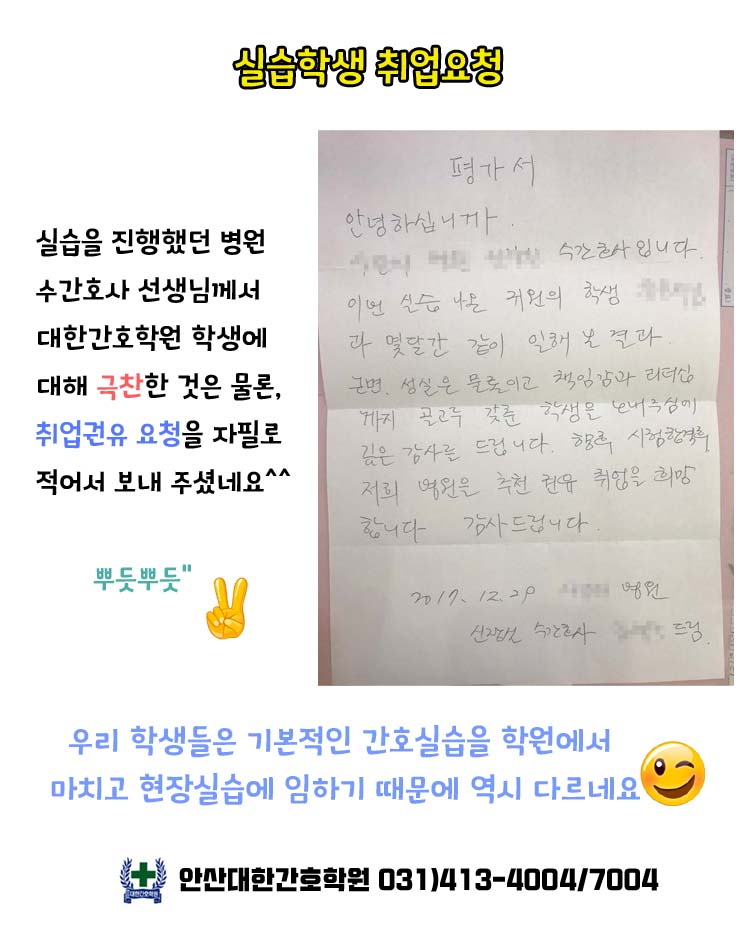 실습학생 취업요청
실습을 진행했던 병원
수간호사 선생님께서
대한간호학원 학생에
대해 극찬한 것은 물론,
취업권유 요청을 자필로
적어서 보내 주셨네요^^
뿌듯뿌듯"
평가서
안녕하십니까.
수간호사입니다.
이번 실습 나온 귀원의 학생
과 몇달간 같이 일해 본 결과
근면. 성실은 물론이고 책임감과 리더십
까지 골고루 갖춘 학생을 보내주심에
깊은 감사를 드립니다. 향후 시험합격후,
저희 병원을 추천 권유 취업을 희망
합니다 감사드립니다.
2017. 12. 29 병원
수간호사 드림.
우리 학생들은 기본적인 간호실습을 학원에서
마치고 현장실습에 임하기 때문에 역시 다르네요
대한간호학원
안산대한간호학원 031)413-4004/7004